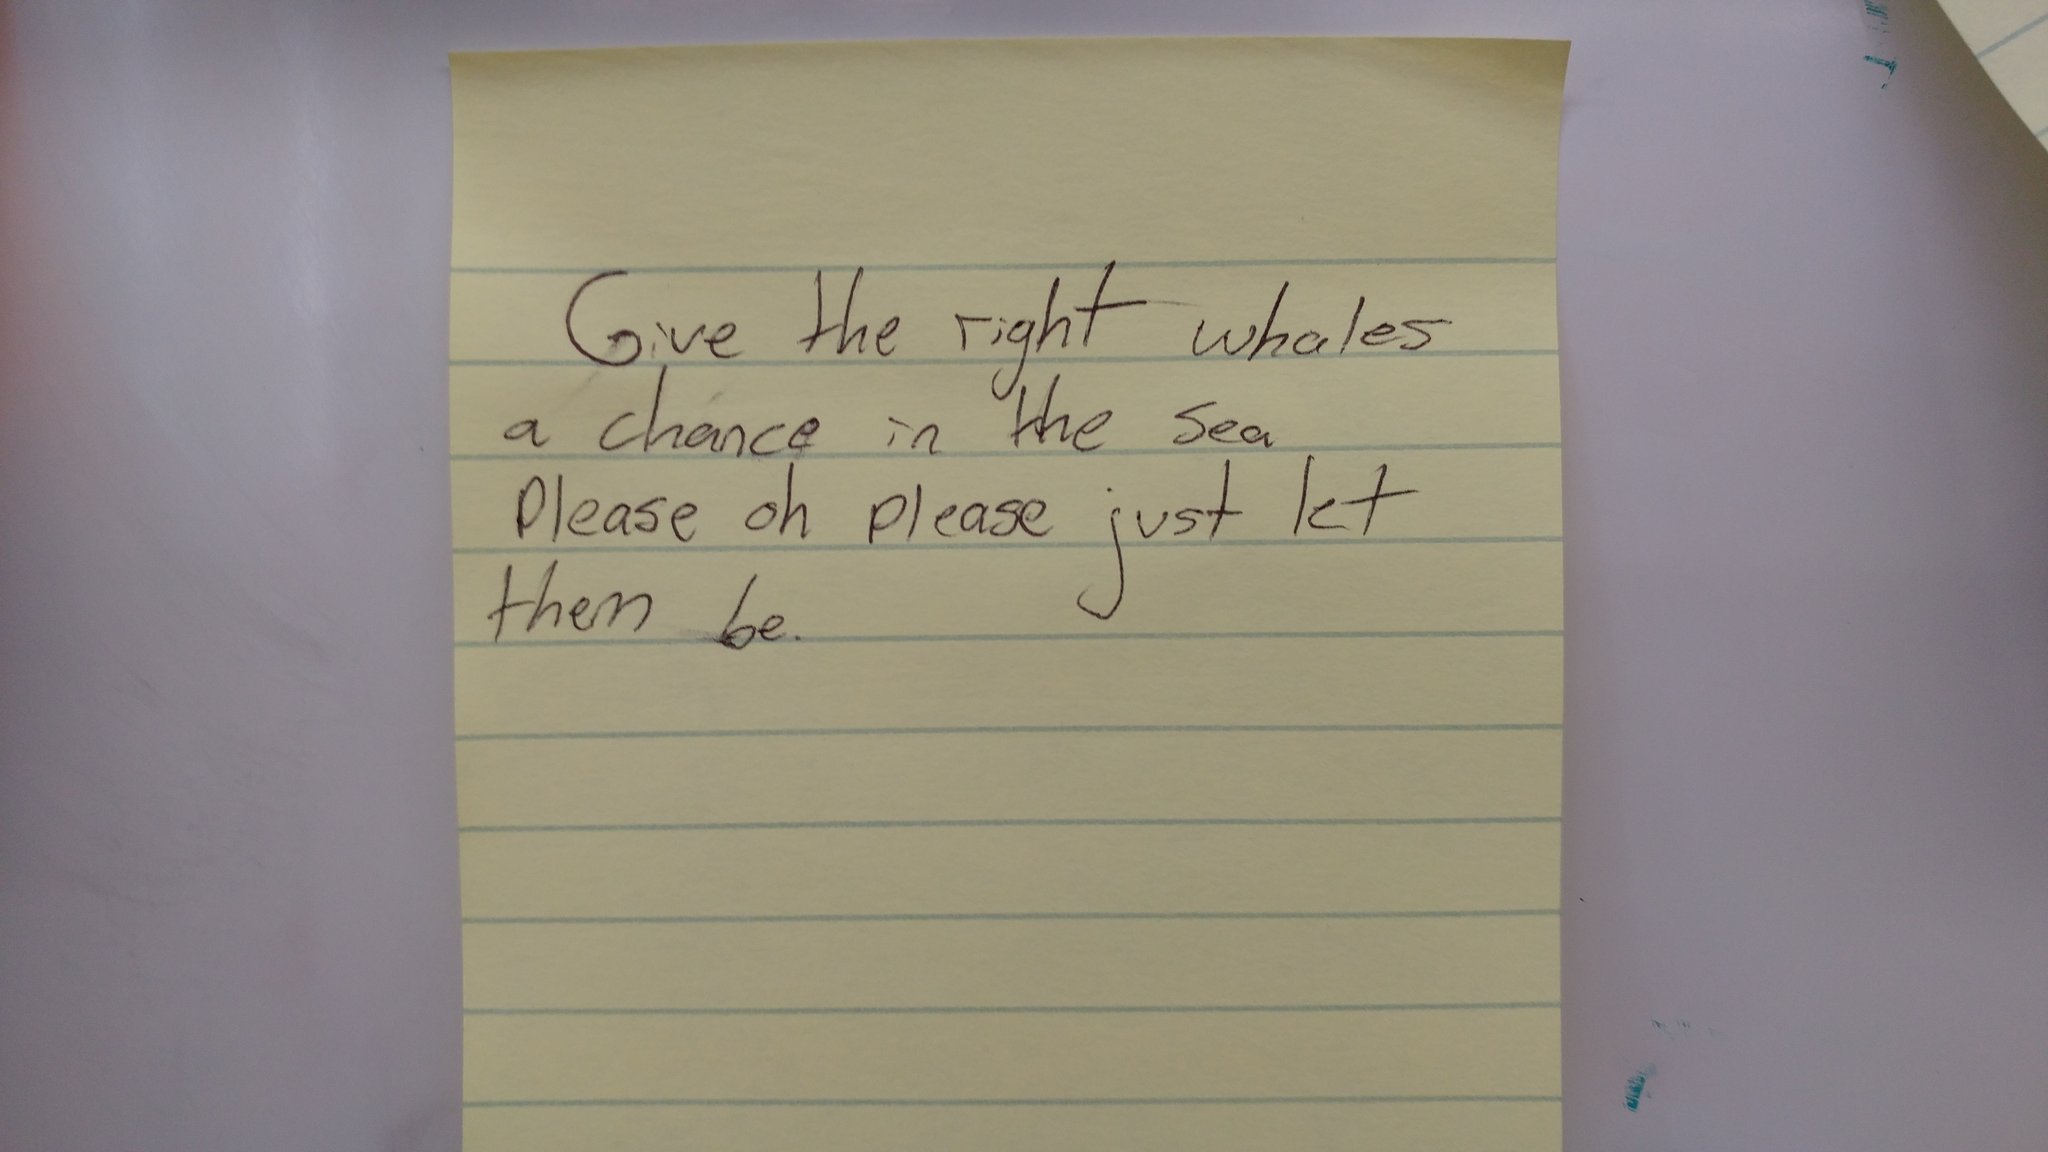 Give the right whales
a chance in the sea
Please oh please just let
them be.